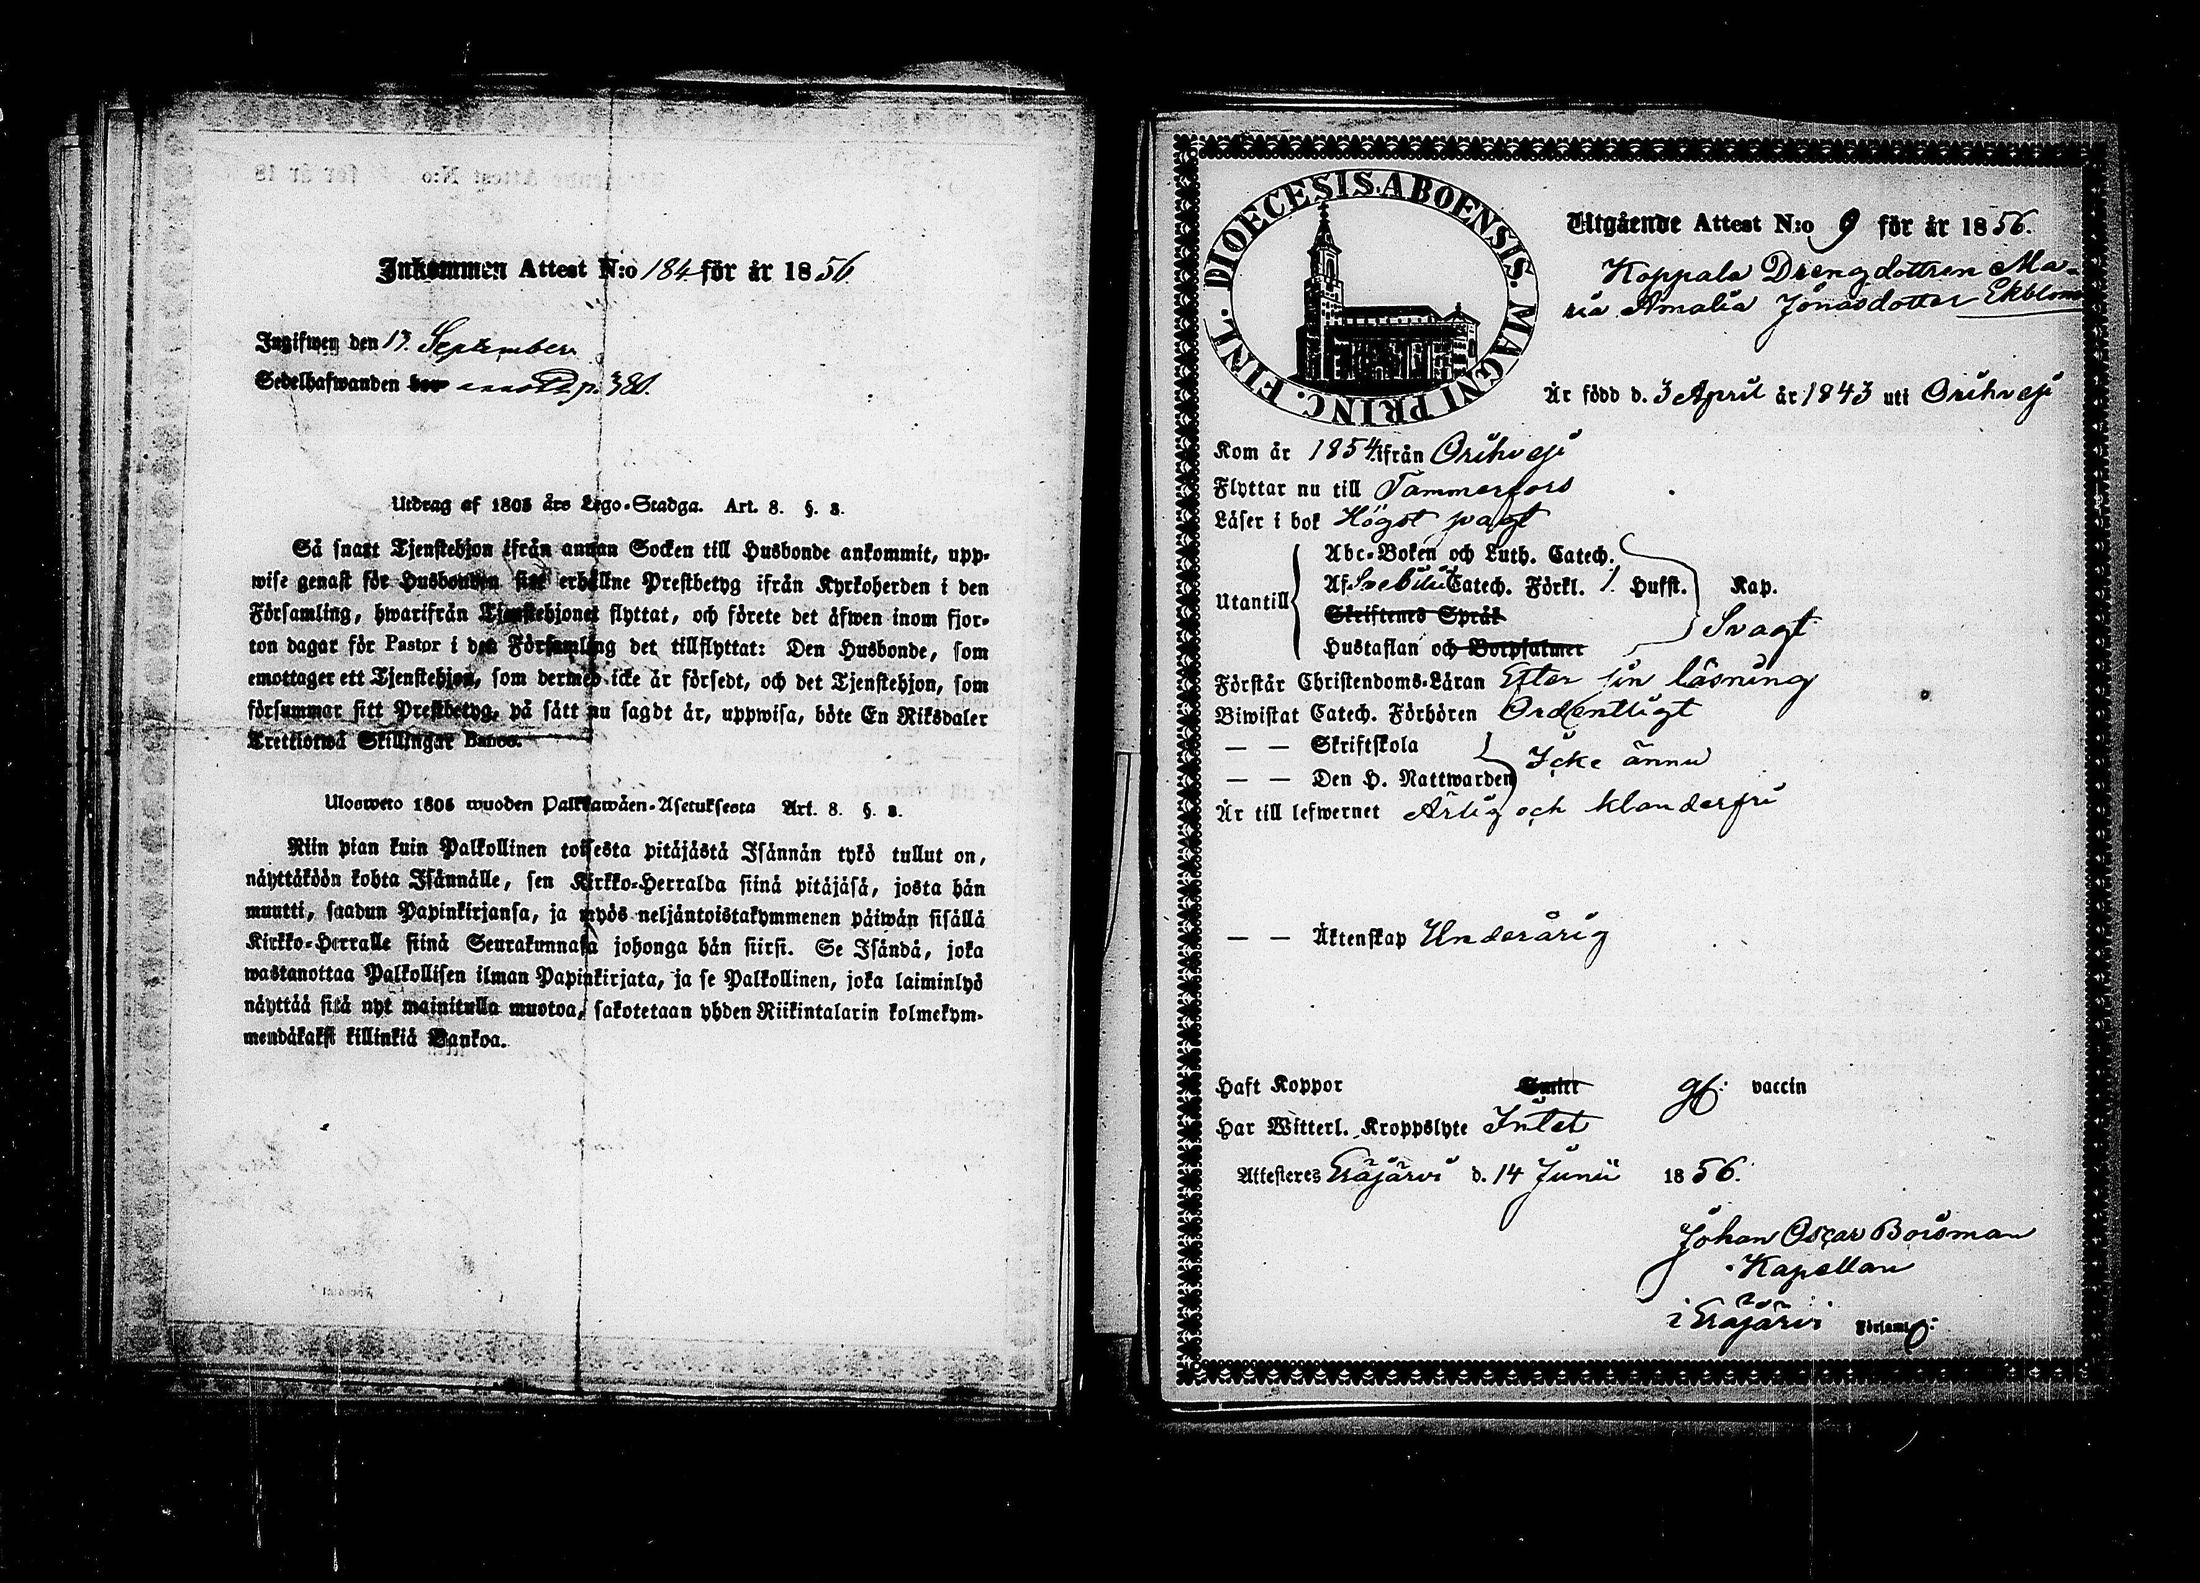 Inkommen Attest N:o 184 för år 1856.
Ingifwen den 17. September
Sedelhafwanden p. 380.
Utdrag af 1805 års Lego-Stadga. Art. 8. §. 3.
Så snart Tjenstehjon ifrån annan Socken till Husbonde ankommit, upp-
wise genast för Husbonden sitt erhållne Prestbetyg ifrån Kyrkoherden i den
Församling, hwarifrån Tjenstehjonet flyttat, och förete det äfwen inom fjor-
ton dagar för Pastor i den Församling det tillflyttat: Den Husbonde, som
emottager ett Tjenstehjon, som dermed icke är försedt, och det Tjenstehjon, som
försummar sitt Prestbetyg, på sätt nu sagdt är, uppwisa, böte En Riksdaler
Trettiotwå Skillingar Banco.
Ulosweto 1805 wuoden Palkkawäen-Asetuksesta Art. 8. §. 3.
Niin pian kuin Palkollinen toisesta pitäjästä Isännän tykö tullut on,
näyttäköön kohta Isännälle, sen Kirkko-Herralda siinä pitäjäsä, josta hän
muutti, saadun Papinkirjansa, ja myös neljäntoistakymmenen päiwän sisällä
Kirkko-Herralle siinä Seurakunnasa johonga hän siirsi. Se Isändä, joka
wastanottaa Palkollisen ilman Papinkirjata, ja se Palkollinen, joka laiminlyö
näyttää sitä nyt mainitulla muotoa, sakotetaan yhden Riikintalarin kolmekym-
mendäkaksi killinkiä Bankoa.
DIOECESIS. ABOENSIS. MAGNI PRINC. FINL.
Utgående Attest N:o 9 för år 1856.
Koppala Drengdottren Ma-
ria Amalia Jonasdotter Ekblom
Är född d. 3 April år 1843 uti Orihvesi
Kom år 1854 ifrån Orihvesi
Flyttar nu till Tammerfors
Läser i bok Högst svagt
Abc-Boken och Luth. Catech.
Af Svebilii Catech. Förkl. 1. Hufst. Kap.
Utantill
Skriftenes Språk
Svagt
Hustaflan och Botpsalmer
Förstår Christendoms-Läran Efter sin läsning
Biwistat Catech. Förhören Ordentligt
— — Skriftskola
Icke ännu
— — Den H. Nattwarden
Är till lefwernet Ärlig och klanderfri
— — Äktenskap Underårig
Haft Koppor vaccin
Har Witterl. Kroppslyte Intet
Attesteres Eräjärvi d. 14 Junii 1856.
Johan Oscar Borsman
Kapellan
i Eräjärvi Församl: